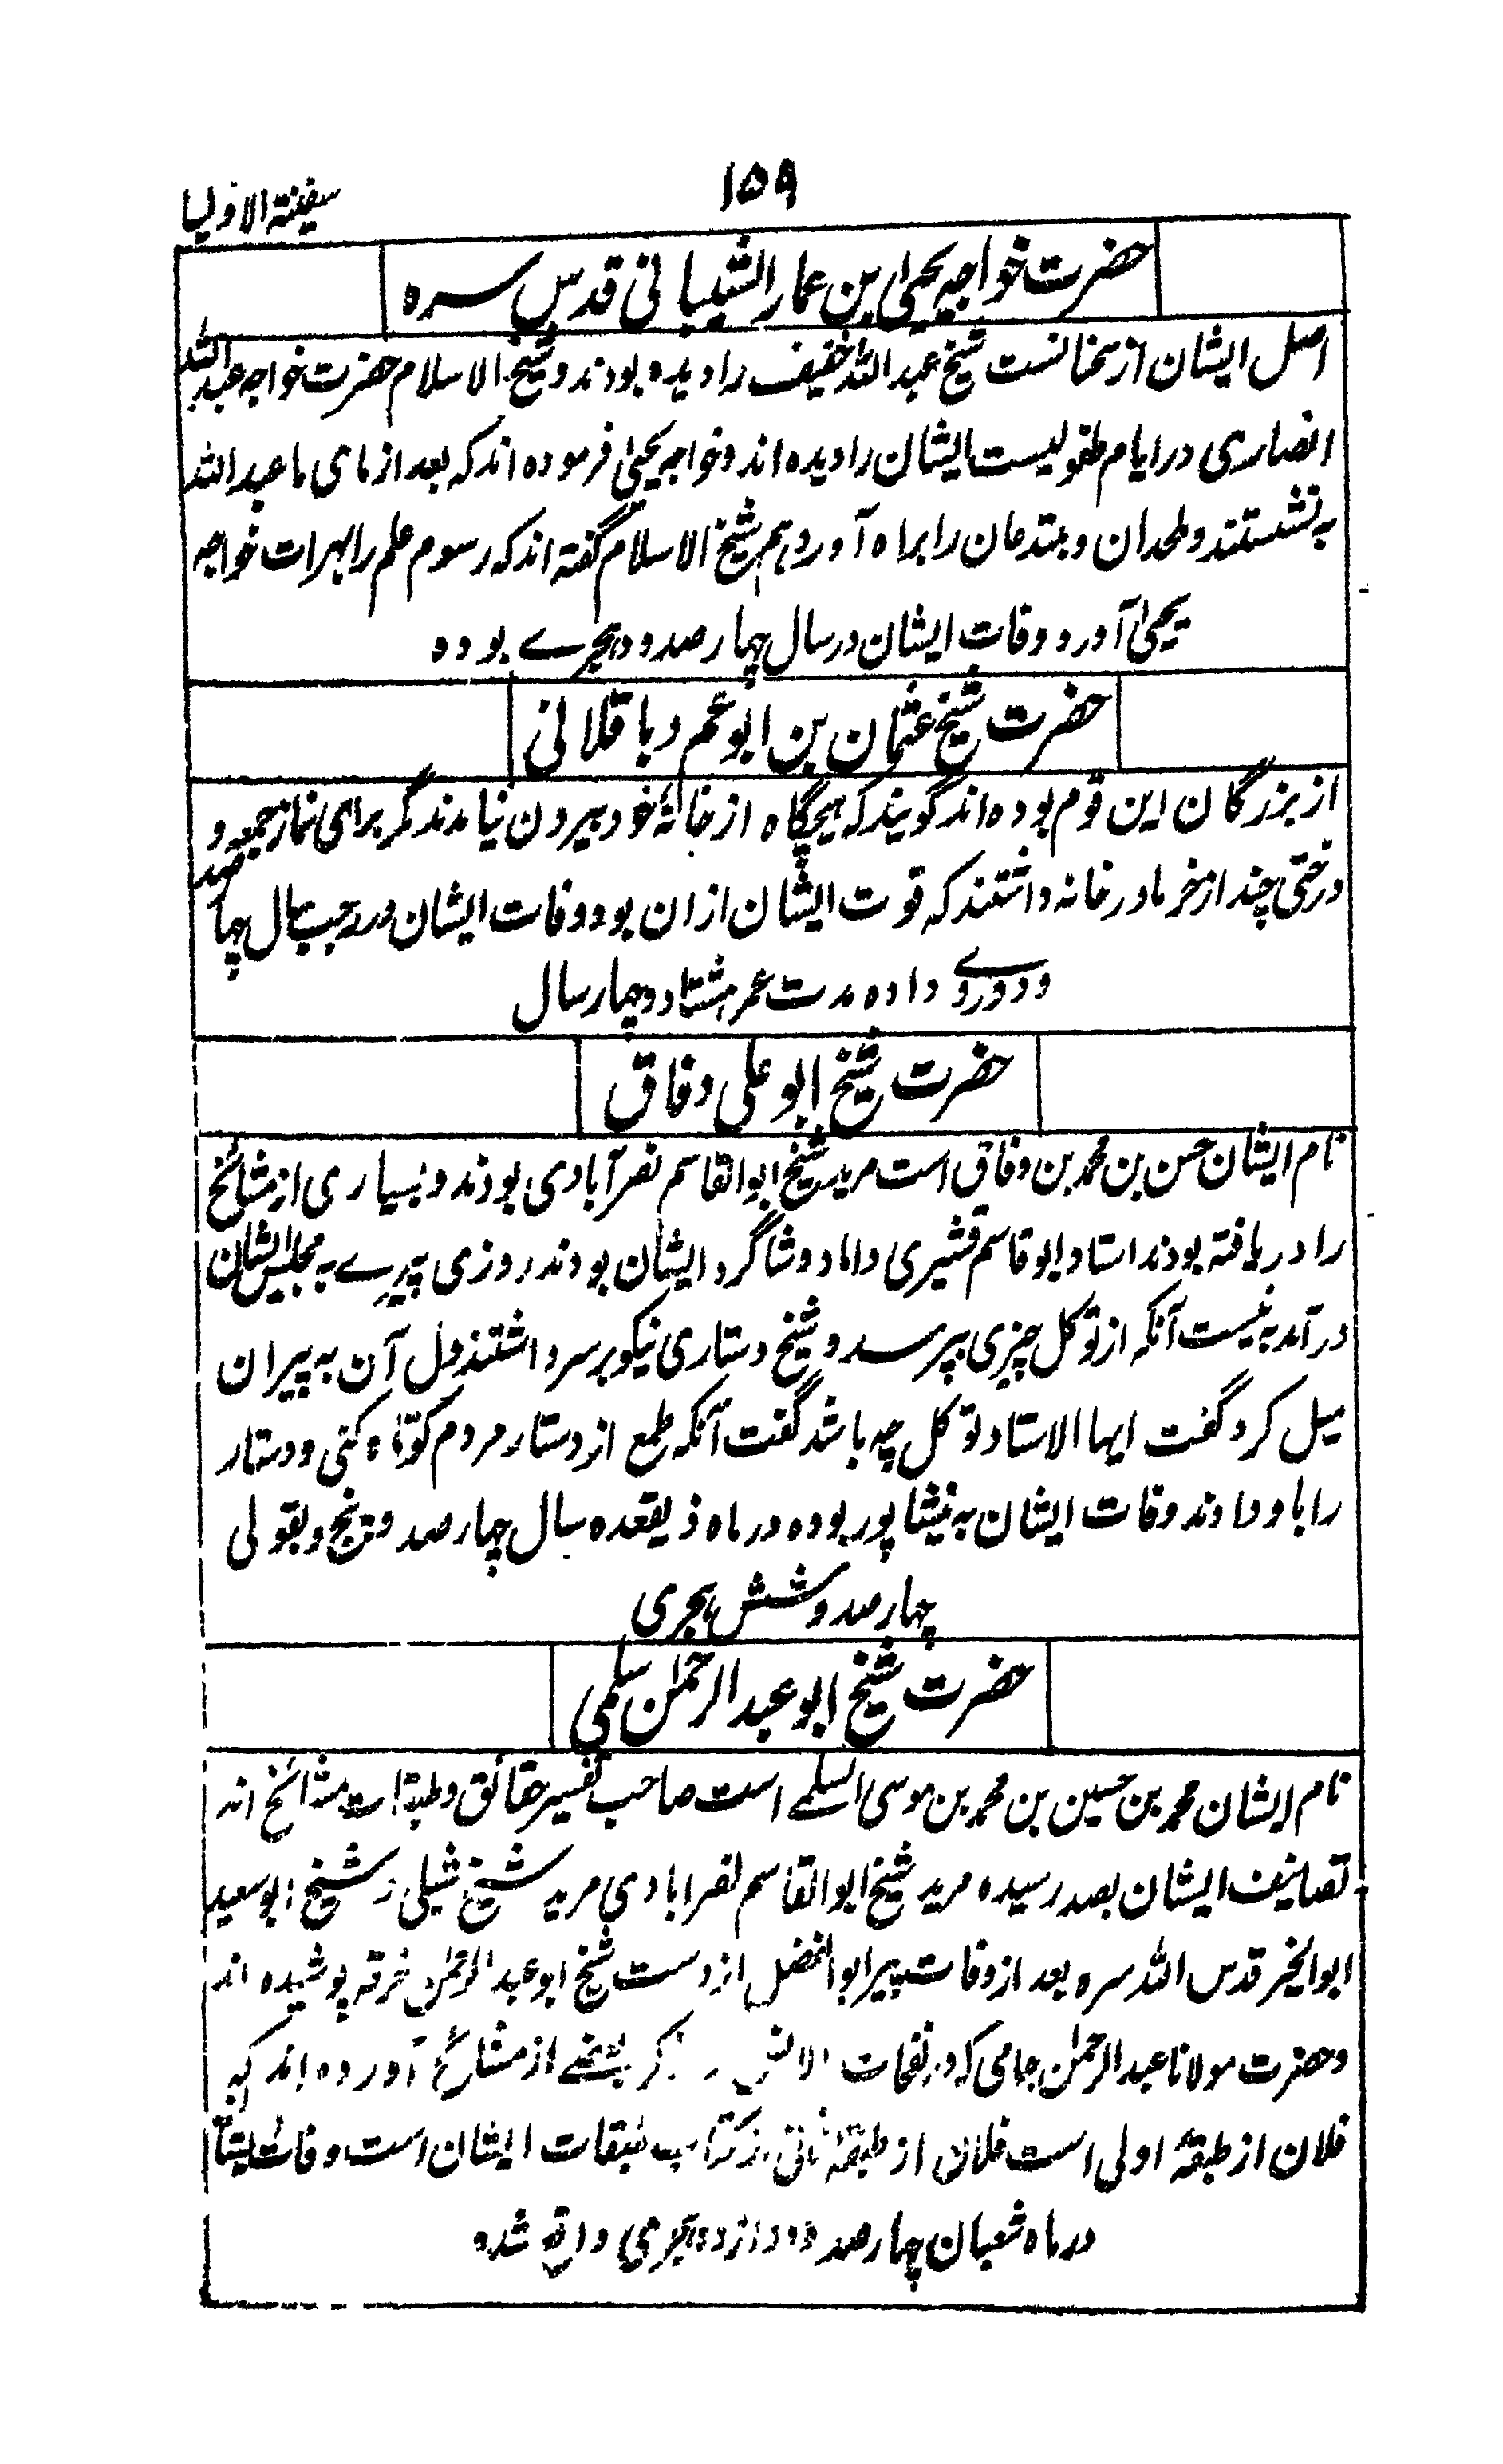 ۱۵۹
سفینة الاولیا
حضرت خواجہ یحییٰ بن عمار الشیبانی قدس سرہ
اصل ایشان از سخانست شیخ عبد اللہ خفیف را دیدہ بودند و شیخ الاسلام حضرت خواجہ عبد اللہ
انصاری در ایام طفولیست ایشان را دیدہ اند و خواجہ یحییٰ فرمودہ اند کہ بعد از مای ما عبد اللہ
بہ نشستند و ملحدان و مبتدعان را براہ آورد ہم شیخ الاسلام گفتہ اند کہ رسوم علم را بہرات خواجہ
یحییٰ آورد و وفات ایشان در سال چہار صد و دو ہجرے بودہ
حضرت شیخ عثمان بن ابو عمرو باقلانی
از بزرگان این قوم بودہ اند گویند کہ ہیچگاہ از خانۂ خود بیرون نیامدند مگر برای نماز جمعہ و
درختی چند از خرما در خانہ داشتند کہ قوت ایشان ازان بود وفات ایشان در رجب سال چہار صد
و دو روے دادہ مدت عمر ہشتاد و چہار سال
حضرت شیخ ابو علی دقاق
نام ایشان حسن بن محمد بن دقاق است مرید شیخ ابو القاسم نصرآبادی بودند و بسیاری از مشائخ
را دریافتہ بودند استاد ابو قاسم قشیری داماد و شاگرد ایشان بودند روزی پیرے بہ مجلس ایشان
در آمد بہ نیست آنکہ از توکل چیزی بپرسد و شیخ دستاری نیکو بر سر داشتند دل آن بہ پیران
میل کرد گفت ایہا الاستاد توکل چہ باشد گفت آنکہ طمع از دستار مردم کوتاہ کنی و دستار
را باو دادند وفات ایشان بہ نیشاپور بودہ در ماہ ذیقعدہ سال چہار صد و پنج و بقولی
چہار صد و شش ہجری
حضرت شیخ ابو عبد الرحمٰن سلمی
نام ایشان محمد بن حسین بن محمد بن موسی السلمے است صاحب تفسیر حقائق و طبقات مشائخ اند
تصانیف ایشان بصد رسیدہ مرید شیخ ابو القاسم نصرابادی مرید شیخ شبلی و شیخ ابو سعید
ابو الخیر قدس اللہ سرہ بعد از وفات پیر ابو الفضل از دست شیخ ابو عبد الرحمٰن خرقہ پوشیدہ اند
و حضرت مولانا عبد الرحمٰن جامی کہ در نفحات الانس ذکر بعضے از مشائخ آوردہ اند کہ
فلان از طبقۂ اولی است فلان از طبقۂ ثانی از کتاب طبقات ایشان است وفات ایشان
در ماہ شعبان چہار صد و دوازدہ ہجری واقع شدہ